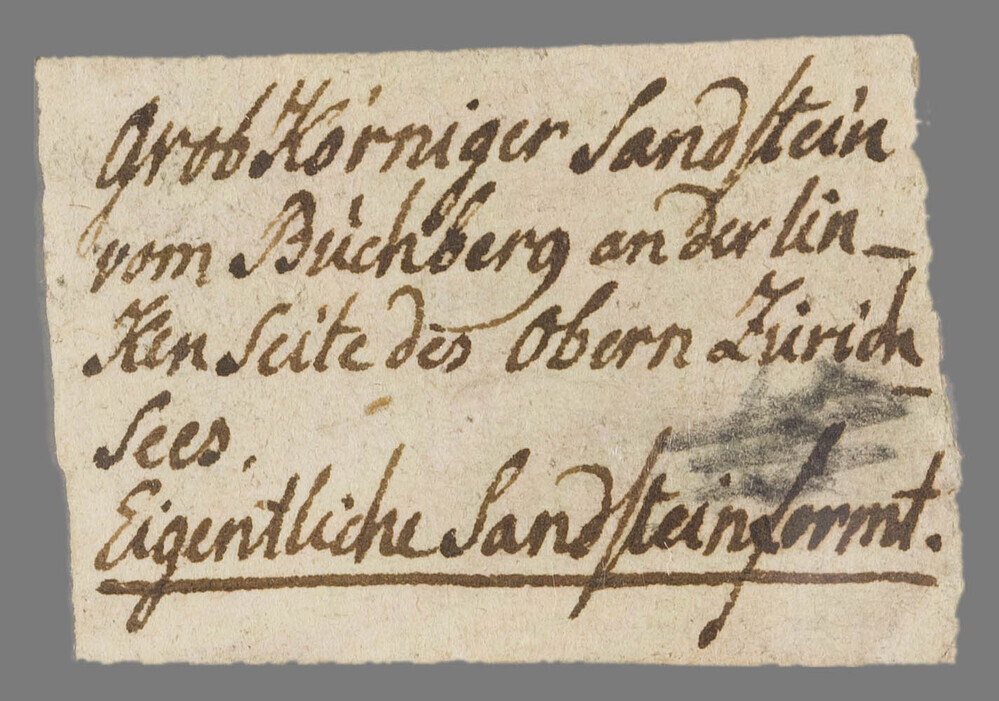 Grob Körniger Sandstein
vom Büchberg an der lin-
Ken Seite des Obern Zürich-
Sees.
Eigentliche Sandsteinformt.